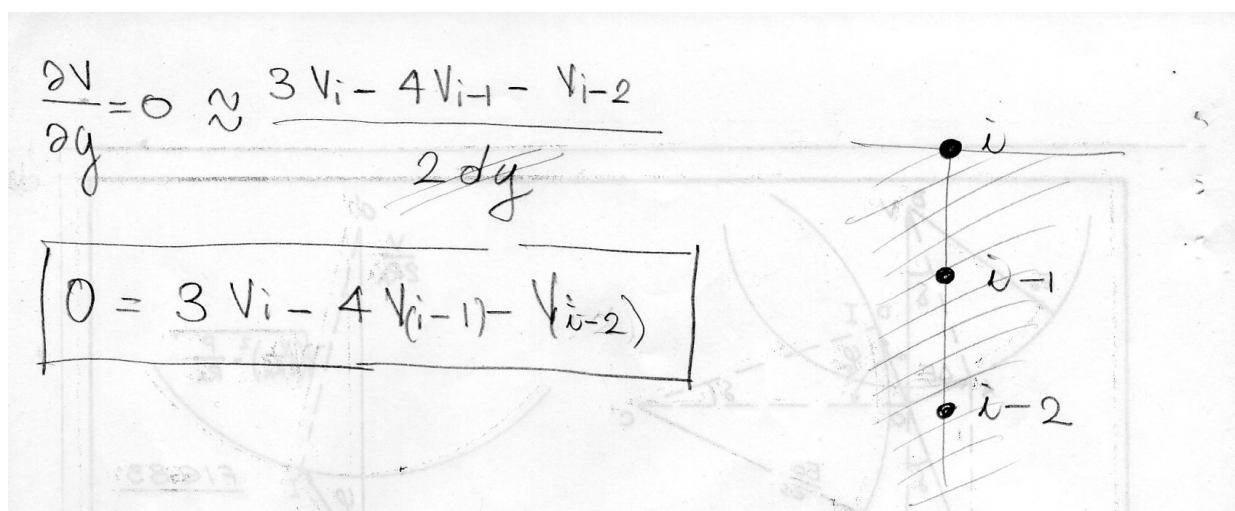 ∂V/∂y = 0 ≈ (3 Vi − 4 Vi−1 − Vi−2) / 2 dy
0 = 3 Vi − 4 V(i−1) − V(i−2)
i
i−1
i−2